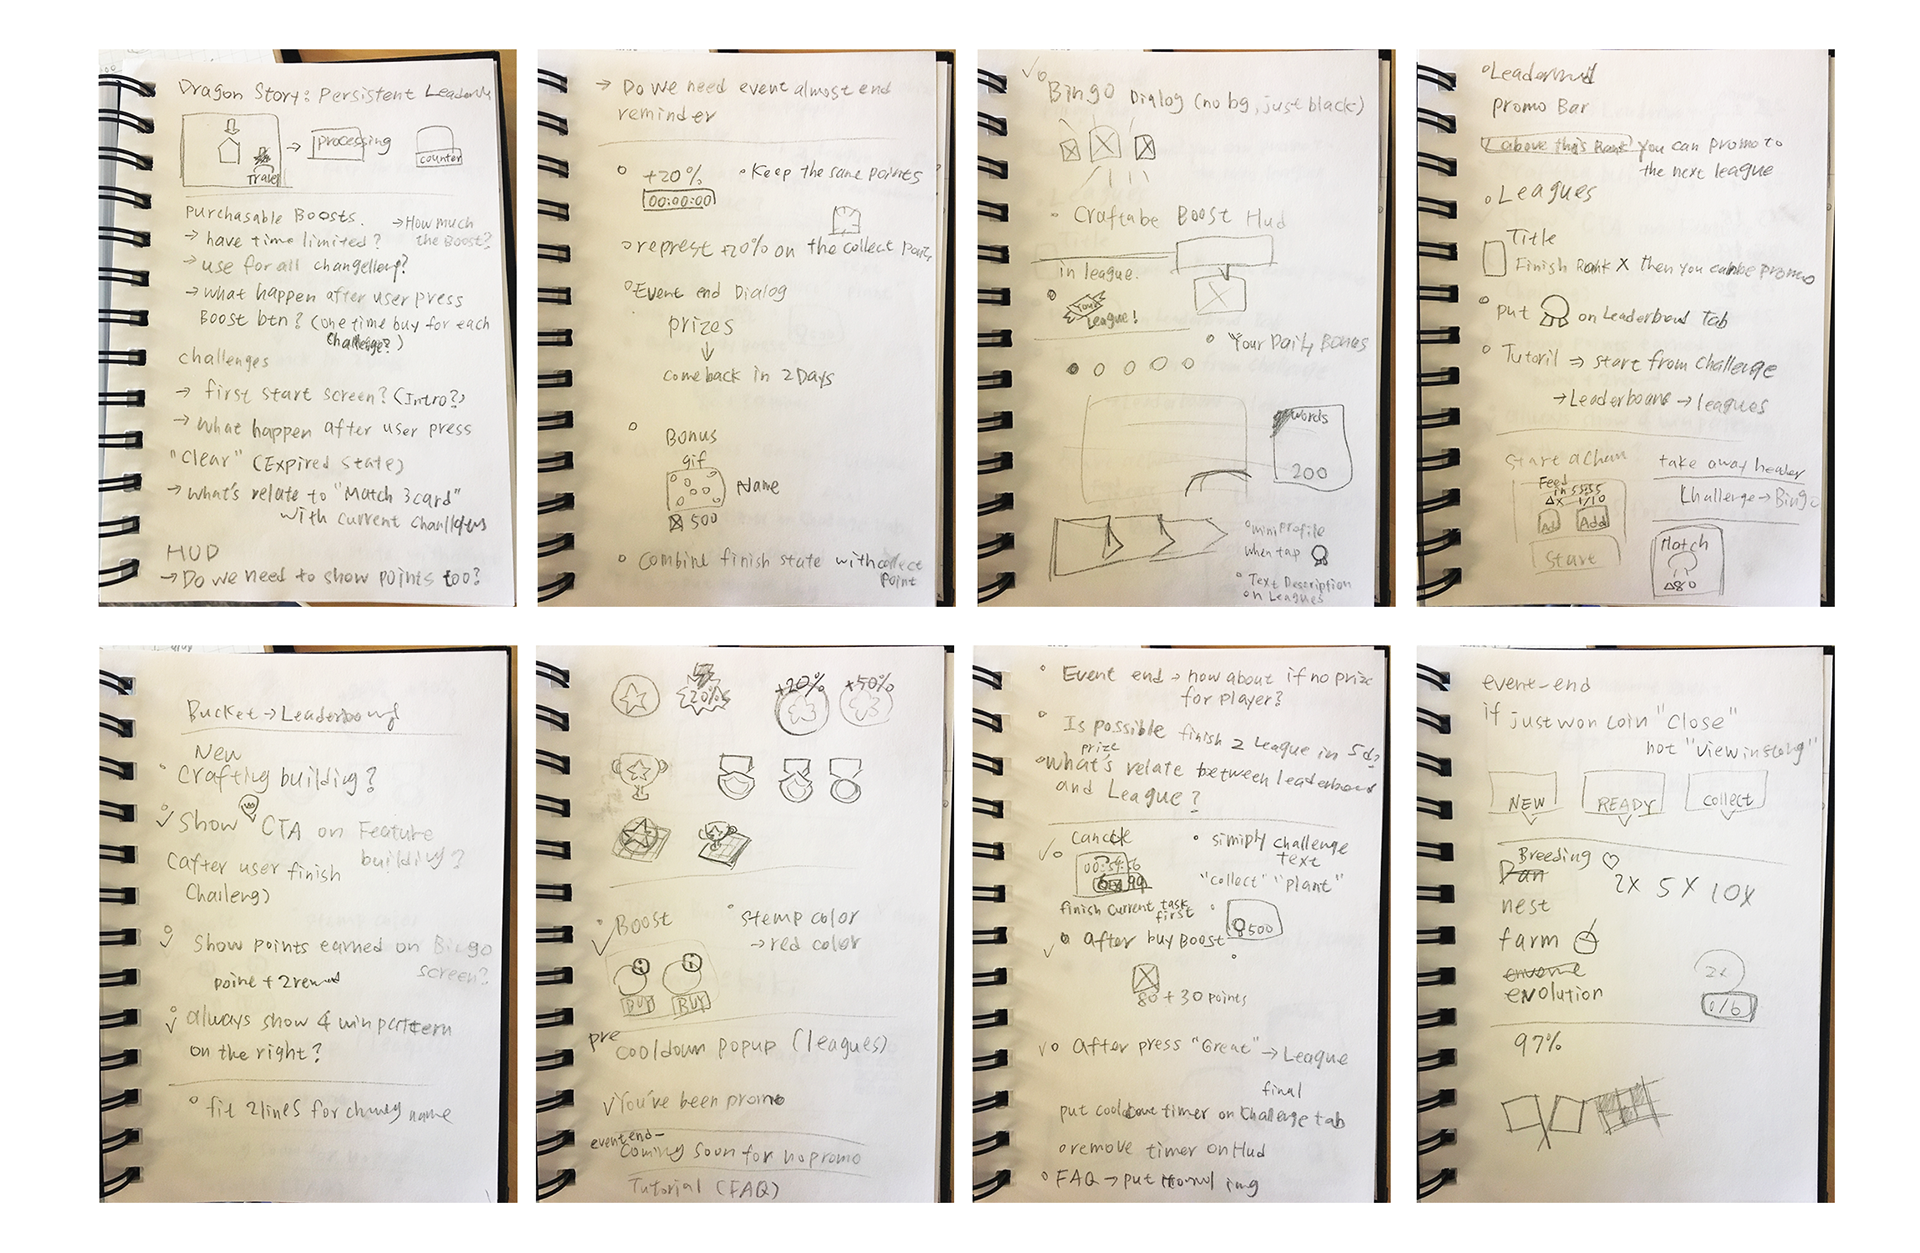 Dragon Story: Persistent
processing
counter
Travel
Purchasable Boosts.
→ How much
the Boost?
→ have time limited?
→ use for all
→ what happen after user press
Boost btn? (one time buy for each
challenge?)
challenges
→ first start screen? (Intro?)
→ what happen after user press
"clear" (Expired state)
→ what's relate to "Match 3 card"
with current
HUD
→ Do we need to show points too?
→ Do we need event almost end
reminder
+20%
00:00:00
• Keep the same points ?
represt +20% on the collect
Event end Dialog
prizes
come back in 2 Days
Bonus
gif
Name
500
combine finish state with collect
point
Bingo Dialog (no bg, just black)
Craftabe Boost Hud
in league.
Your
League!
Your Daily Bonus
words
200
mini profile
when tap
Text Description
on Leagues
promo Bar
above this Rank you can promo to
the next league
Leagues
Title
Finish Rank X then you can be promo
put on Leaderboud Tab
Tutoril → start from challenge
→ → leagues
start a
take away header
Challenge → Bingo
Feed
1/10
Add
Add
Start
Match
80
Bucket →
New
Crafting building?
Show CTA on Feature
building?
(after user finish
Challeng)
Show points earned on Bingo
screen?
+ 2
always show 4 win pattern
on the right?
fit 2 lines for name
20%
+20%
+50%
3
3
Boost
stemp color
→ red color
BUY
BUY
pre
cooldown popup (leagues)
You've been promo
event end—
Coming Soon for no promo
Tutorial (FAQ)
Event end → how about if no prize
for player?
Is possible finish 2 League in 5d?
prize
what's relate between leaderboud
and League?
simiply challenge
text
"collect" "plant"
finish current task
first
500
After buy Boost
80 + 30 points
After press "Great" → League
final
put timer on challenge tab
remove timer on Hud
FAQ → put
event-end
if just won coin "close"
not
NEW
READY
collect
Breeding
2x 5x 10x
nest
farm
evolution
2x
0/6
97%